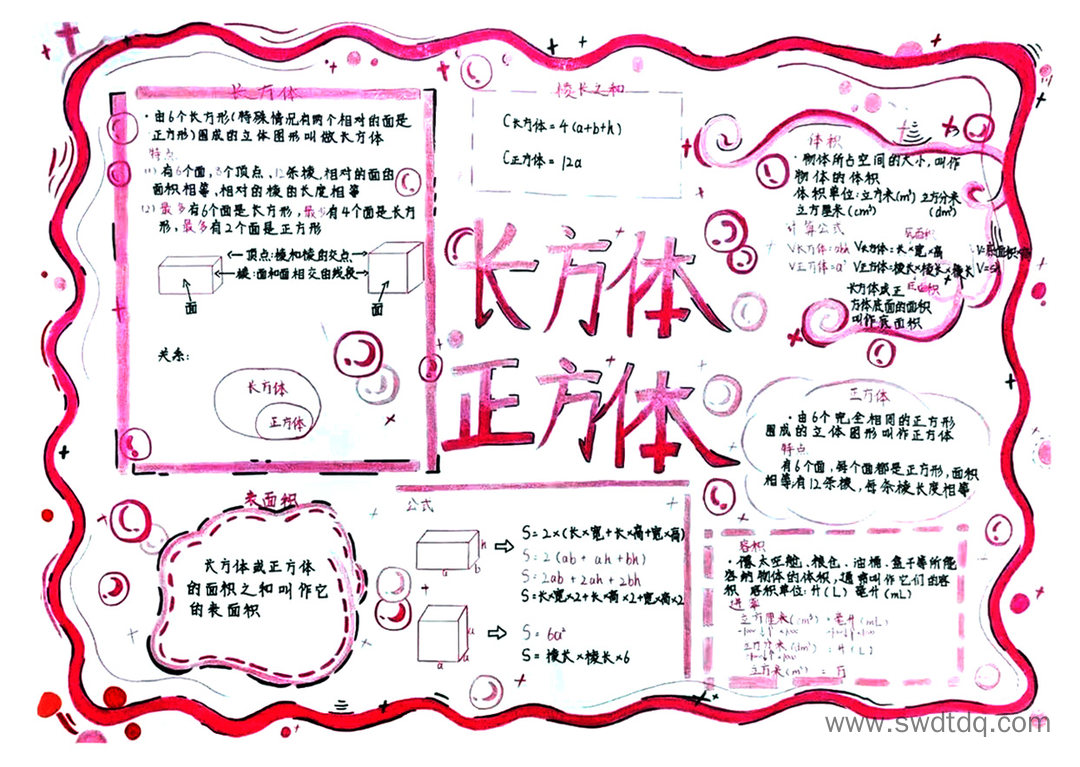 长方体
·由6个长方形(特殊情况有两个相对的面是
正方形)围成的立体图形叫做长方体
特点
(1)有6个面,8个顶点、12条棱,相对的面的
面积相等、相对的棱的长度相等
(2)最多有6个面是长方形,最少有4个面是长方
形,最多有2个面是正方形
顶点:棱和棱的交点
棱:面和面相交的线段
面
面
关系:
长方体
正方体
棱长之和
C长方体=4(a+b+h)
C正方体=12a
体积
·物体所占空间的大小,叫作
物体的体积
体积单位:立方米(m³) 立方分米
立方厘米(cm³) (dm³)
计算公式
底面积
V长方体=abh V长方体=长×宽×高
V正方体=a³ V正方体=棱长×棱长×棱长
V=底面积×高
V=s
底面积
长方体或正
方体底面的面积
叫作底面积
长方体
正方体
正方体
·由6个完全相同的正方形
围成的立体图形叫作正方体
特点
有6个面,每个面都是正方形,面积
相等,有12条棱,每条棱长度相等
表面积
长方体或正方体
的面积之和叫作它
的表面积
公式
h
a
b
S=2×(长×宽+长×高+宽×高)
S=2(ab+ah+bh)
S=2ab+2ah+2bh
S=长×宽×2+长×高×2+宽×高×2
a
a
a
S=6a²
S=棱长×棱长×6
容积
·像太空舱、粮仓、油桶、盒子等所能
容纳物体的体积,通常叫作它们的容
积 容积单位:升(L) 毫升(mL)
进率
立方厘米(cm³)=毫升(mL)
立方分米(dm³)=升(L)
立方米(m³)=方
www.swdtdq.com